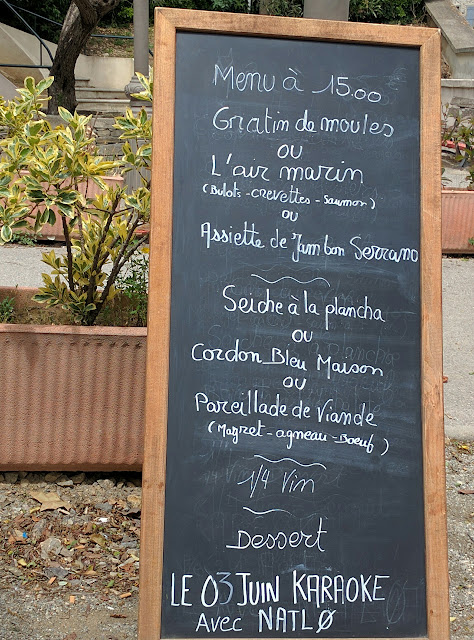 Menu à 15.00
Gratin de moules
ou
L'air marin
(Bulots-crevettes-Saumon)
ou
Assiette de Jambon Serrano
Seiche à la plancha
ou
Cordon Bleu Maison
ou
Pareillade de Viande
(Magret-agneau-Boeuf)
1/4 Vin
Dessert
LE 03 JUIN KARAOKE
Avec NATLØ